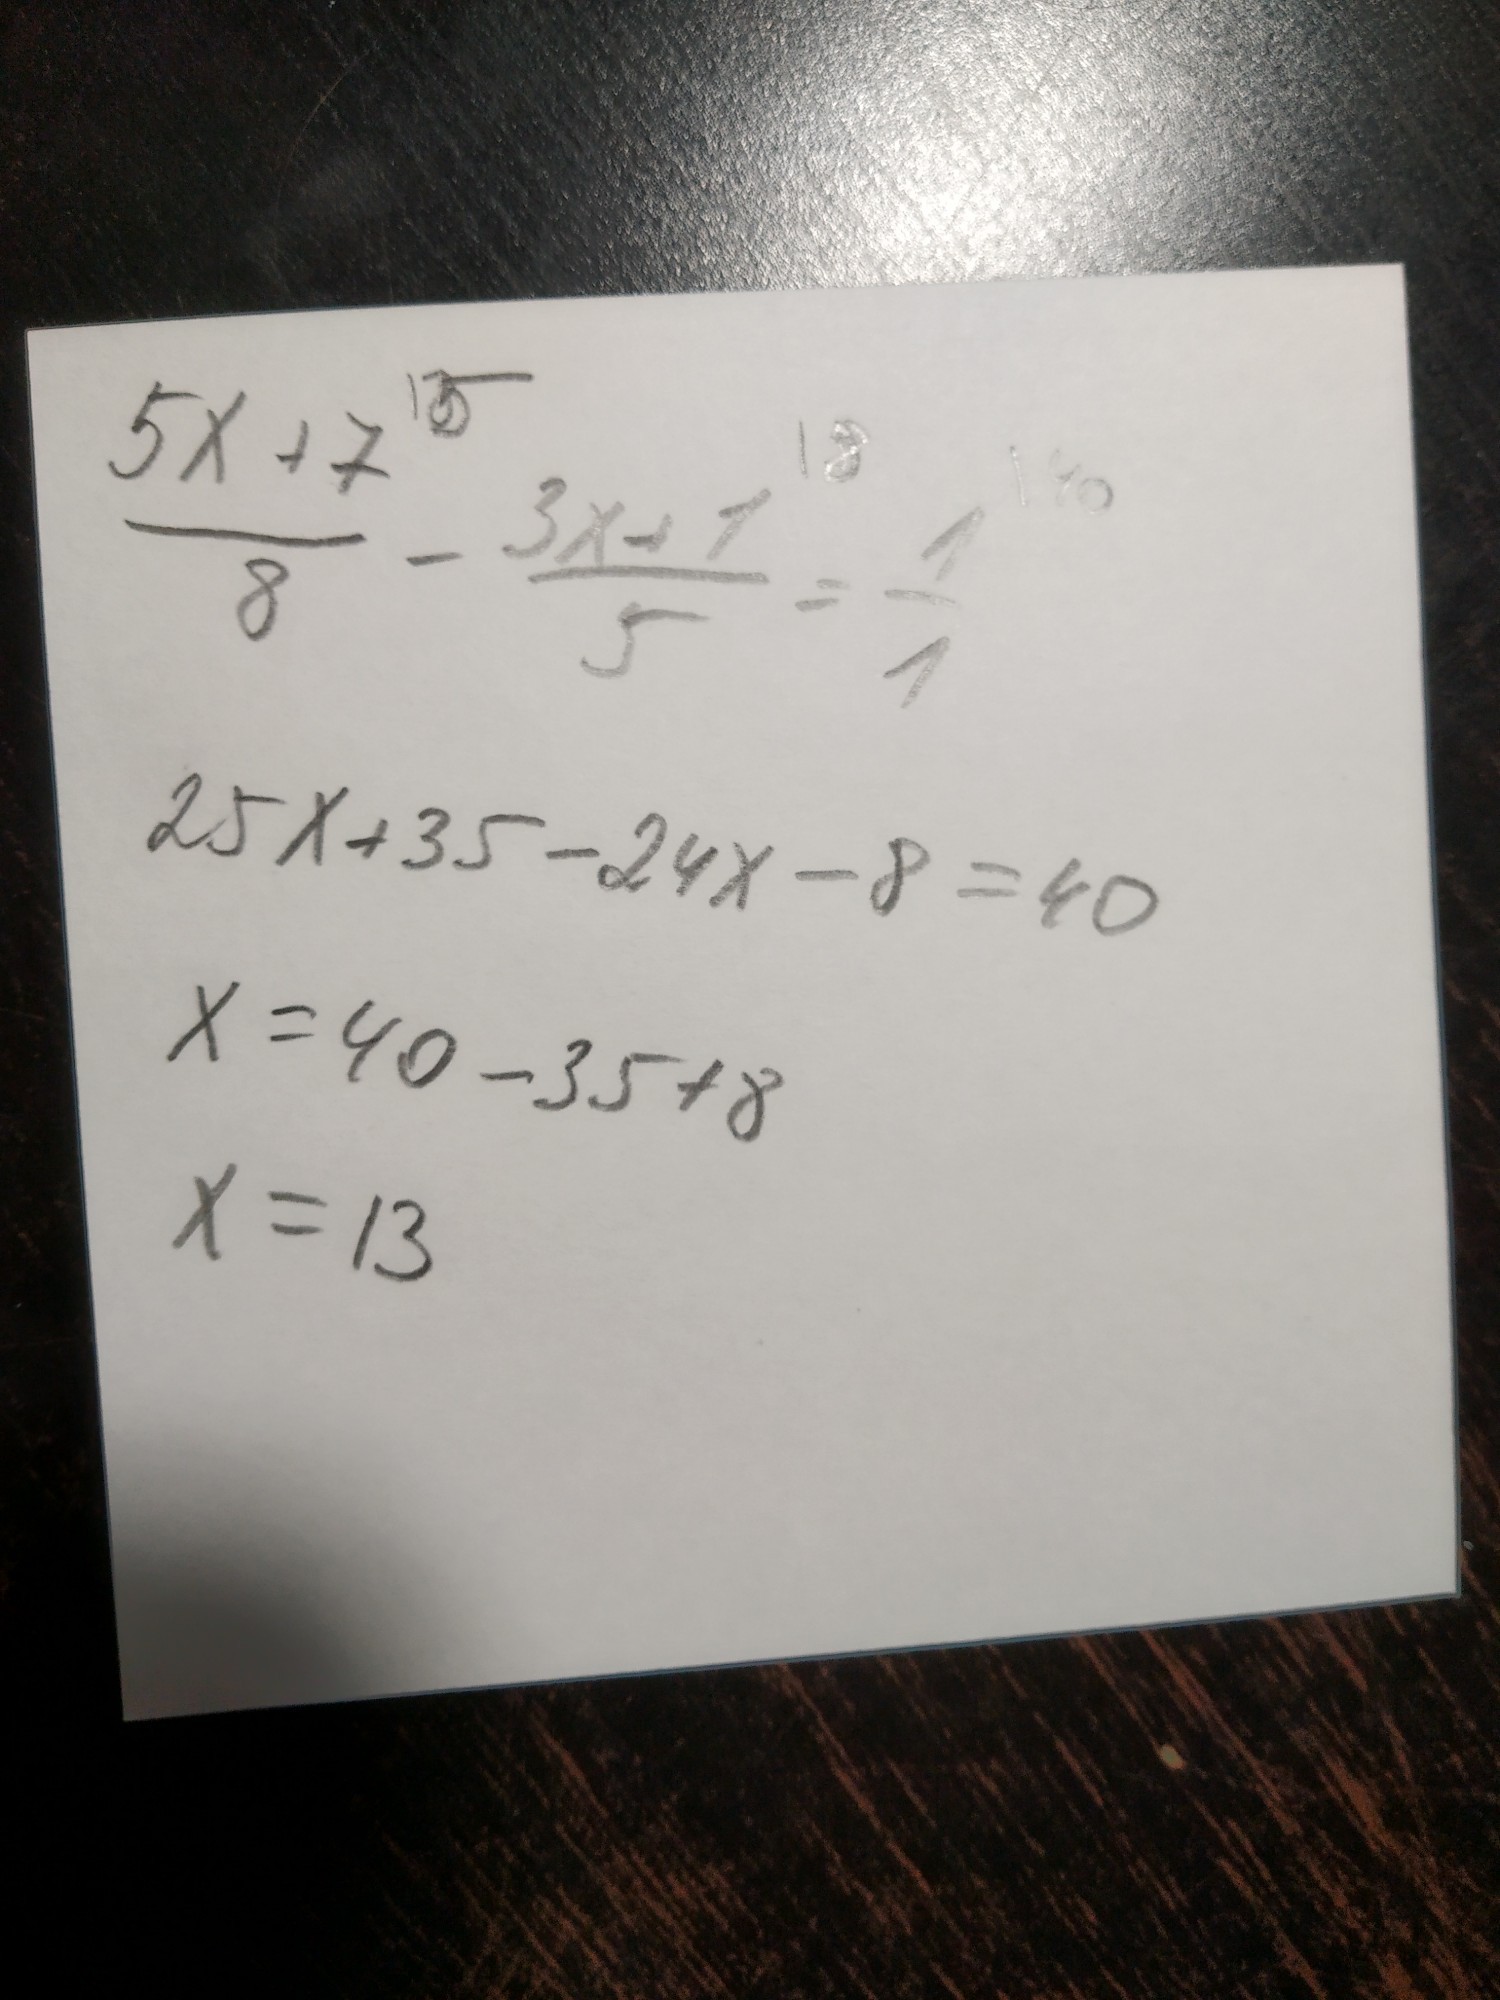 (5x+7)/8 |5 - (3x+1)/5 |8 = 1/1 |40
25x+35-24x-8=40
x=40-35+8
x=13